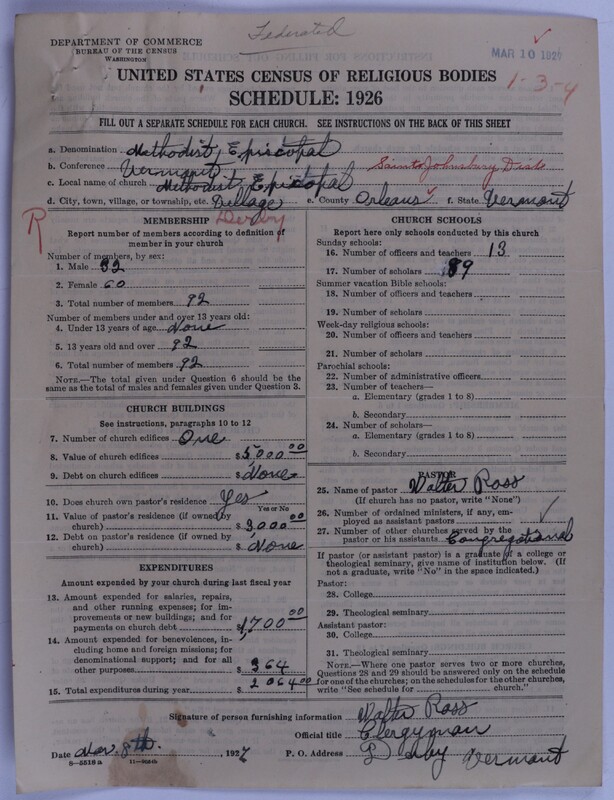 Federated
DEPARTMENT OF COMMERCE
BUREAU OF THE CENSUS
WASHINGTON
MAR 10 1927
1-3-4
UNITED STATES CENSUS OF RELIGIOUS BODIES
SCHEDULE: 1926
FILL OUT A SEPARATE SCHEDULE FOR EACH CHURCH. SEE INSTRUCTIONS ON THE BACK OF THIS SHEET
a. Denomination Methodist Episcopal
b. Conference Vermont Saint Johnsbury Dist.
c. Local name of church Methodist Episcopal
d. City, town, village, or township, etc. Village e. County Orleans f. State Vermont
R
Derby
MEMBERSHIP
Report number of members according to definition of member in your church
Number of members, by sex:
1. Male 32
2. Female 60
3. Total number of members 92
Number of members under and over 13 years old:
4. Under 13 years of age None
5. 13 years old and over 92
6. Total number of members 92
NOTE.—The total given under Question 6 should be the same as the total of males and females given under Question 3.
CHURCH BUILDINGS
See instructions, paragraphs 10 to 12
7. Number of church edifices One
8. Value of church edifices $5,000.00
9. Debt on church edifices $None
10. Does church own pastor's residence Yes
Yes or No
11. Value of pastor's residence (if owned by church) $3,000.00
12. Debt on pastor's residence (if owned by church) $None
EXPENDITURES
Amount expended by your church during last fiscal year
13. Amount expended for salaries, repairs, and other running expenses; for improvements or new buildings; and for payments on church debt $1,700.00
14. Amount expended for benevolences, including home and foreign missions; for denominational support; and for all other purposes $364
15. Total expenditures during year $2064.00
CHURCH SCHOOLS
Report here only schools conducted by this church
Sunday schools:
16. Number of officers and teachers 13
17. Number of scholars 89
Summer vacation Bible schools:
18. Number of officers and teachers
19. Number of scholars
Week-day religious schools:
20. Number of officers and teachers
21. Number of scholars
Parochial schools:
22. Number of administrative officers
23. Number of teachers—
a. Elementary (grades 1 to 8)
b. Secondary
24. Number of scholars—
a. Elementary (grades 1 to 8)
b. Secondary
PASTOR
25. Name of pastor Walter Ross
(If church has no pastor, write "None")
26. Number of ordained ministers, if any, employed as assistant pastors
27. Number of other churches served by the pastor or his assistants Congregational
If pastor (or assistant pastor) is a graduate of a college or theological seminary, give name of institution below. (If not a graduate, write "No" in the space indicated.)
Pastor:
28. College
29. Theological seminary
Assistant pastor:
30. College
31. Theological seminary
NOTE.—Where one pastor serves two or more churches, Questions 28 and 29 should be answered only on the schedule for one of the churches; on the schedules for the other churches, write "See schedule for church."
Signature of person furnishing information Walter Ross
Official title Clergyman
Date 8th. 1927 P. O. Address Derby Vermont
8-5518 a